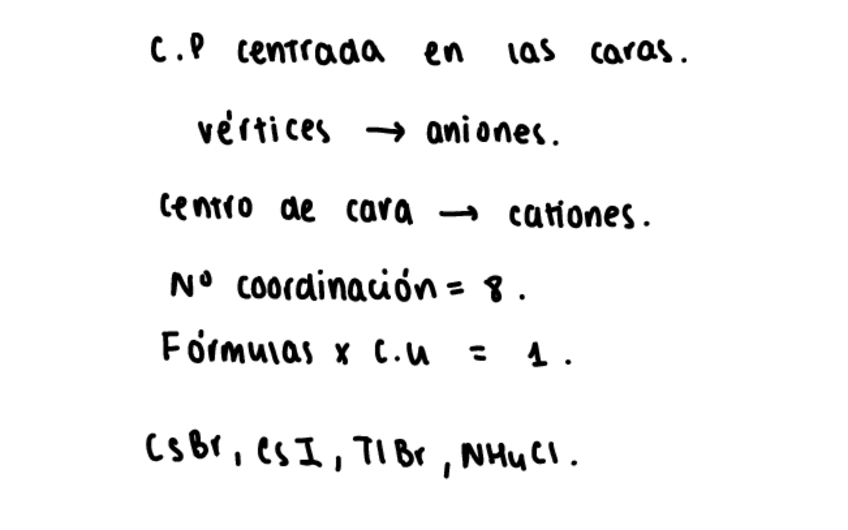 C.P centrada en las caras.
vértices → aniones.
Centro de cara → cationes.
Nº coordinación = 8.
Fórmulas x C.u = 1.
CsBr, CsI, TlBr, NH4Cl.